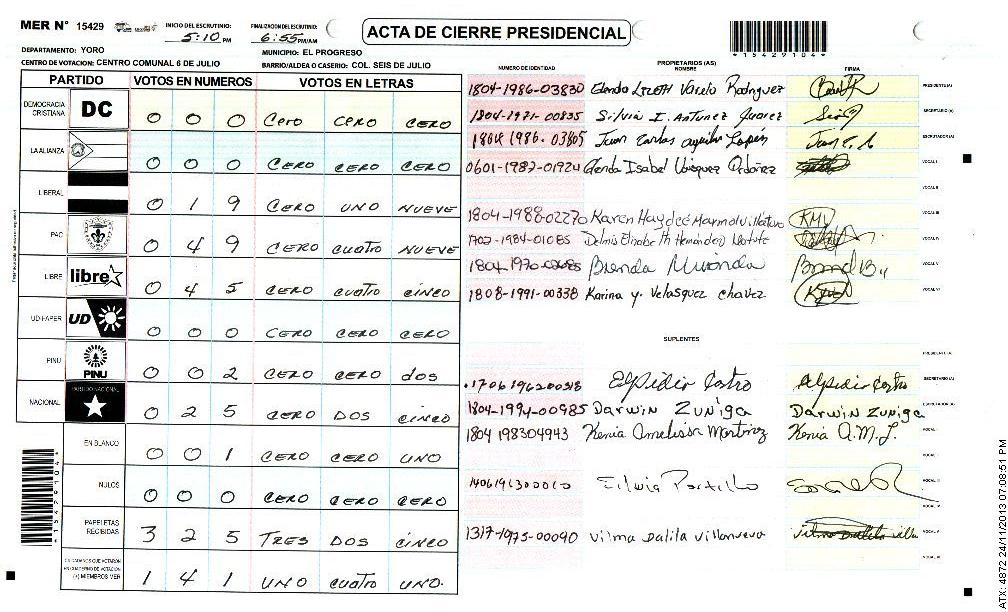 MER N° 15429
INICIO DEL ESCRUTINIO: 5:10 PM
FINALIZACION DEL ESCRUTINIO: 6:55 PM/AM
ACTA DE CIERRE PRESIDENCIAL
*15429104*
DEPARTAMENTO: YORO
MUNICIPIO: EL PROGRESO
CENTRO DE VOTACION: CENTRO COMUNAL 6 DE JULIO
BARRIO/ALDEA O CASERIO: COL. SEIS DE JULIO
PARTIDO VOTOS EN NUMEROS VOTOS EN LETRAS
DEMOCRACIA CRISTIANA DC 0 0 0 Cero CERO CERO
LA ALIANZA 0 0 0 CERO CERO CERO
LIBERAL 0 1 9 CERO UNO NUEVE
PAC 0 4 9 CERO cuatro NUEVE
LIBRE libre 0 4 5 CERO cuatro cinco
UD FAPER UD 0 0 0 CERO CERO CERO
PINU PINU 0 0 2 CERO CERO dos
NACIONAL PARTIDO NACIONAL 0 2 5 CERO DOS cinco
EN BLANCO 0 0 1 CERO CERO UNO
NULOS 0 0 0 CERO CERO CERO
PAPELETAS RECIBIDAS 3 2 5 TRES DOS cinco
CIUDADANOS QUE VOTARON EN CUADERNO DE VOTACION (+) MIEMBROS MER 1 4 1 UNO cuatro UNO.
NUMERO DE IDENTIDAD PROPIETARIOS (AS) NOMBRE FIRMA
1804-1986-03830 Glenda Lizeth Varela Rodriguez PRESIDENTE (A)
1804-1971-00835 Silvia I. Antunez Juarez SECRETARIO (A)
1804 1986-03805 Juan Carlos aguilar Lopez ESCRUTADOR (A)
0601-1987-01924 Glenda Isabel Vasquez Ordoñez VOCAL I
VOCAL II
1804-1988-02270 Karen Haydeé Marmol KMV VOCAL III
1702-1984-01085 Delmis Elizabeth Hernández VOCAL IV
1804 1970-02685 Brenda Miranda VOCAL V
1808-1991-00338 Karina y. Velasquez chavez VOCAL VI
SUPLENTES
PRESIDENTE (A)
1706196200318 Elpidio Castro Elpidio Castro SECRETARIO (A)
1804-1994-00985 Darwin Zuniga Darwin Zuniga ESCRUTADOR (A)
1804 198304943 Kenia Amelissa Martinez Kenia A.M.L. VOCAL I
Silvia Portillo VOCAL III
VOCAL IV
1317-1975-00090 Vilma Dalila Villanueva VOCAL V
VOCAL VI
*15429104*
ATX: 4872 24/11/2013 07:08:51 PM